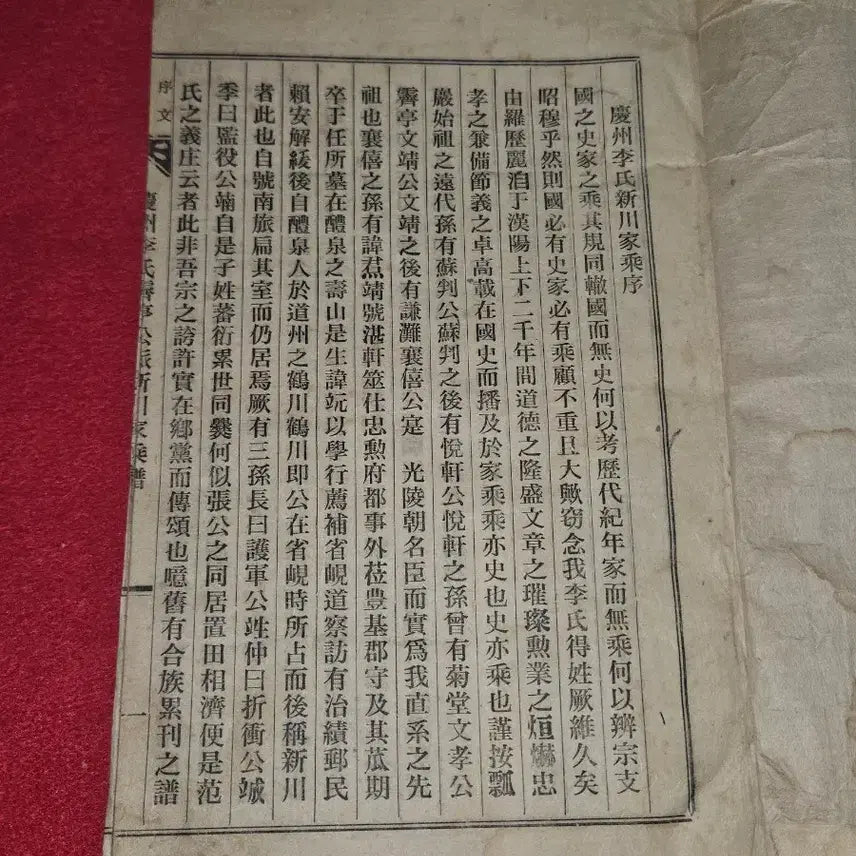 慶州李氏新川家乘序
國之史家之乘其規同轍國而無史何以考歷代紀年家而無乘何以辨宗支
昭穆乎然則國必有史家必有乘顧不重且大歟窃念我李氏得姓厥維久矣
由羅歷麗洎于漢陽上下二千年間道德之隆盛文章之璀璨勲業之烜爀忠
孝之兼備節義之卓高載在國史而播及於家乘乘亦史也史亦乘也謹按瓢
巖始祖之遠代孫有蘇判公蘇判之後有悅軒公悅軒之孫曾有菊堂文孝公
霽亭文靖公文靖之後有謙灘襄僖公寔 光陵朝名臣而實爲我直系之先
祖也襄僖之孫有諱 靖號湛軒筮仕忠勲府都事外莅豊基郡守及其苽期
卒于任所墓在醴泉之壽山是生諱竌以學行薦補省峴道察訪有治績郵民
賴安解緩後自醴泉人於道州之鶴川鶴川即公在省峴時所占而後稱新川
者此也自號南旅扁其室而仍居焉厥有三孫長曰護軍公竍仲曰折衝公竤
季曰監役公竬自是子姓蕃衍累世同爨何似張公之同居置田相濟便是范
氏之義庄云者此非吾宗之誇許實在鄉黨而傳頌也噫舊有合族累刊之譜
序文
慶州李氏霽亭公派新川家乘譜
一